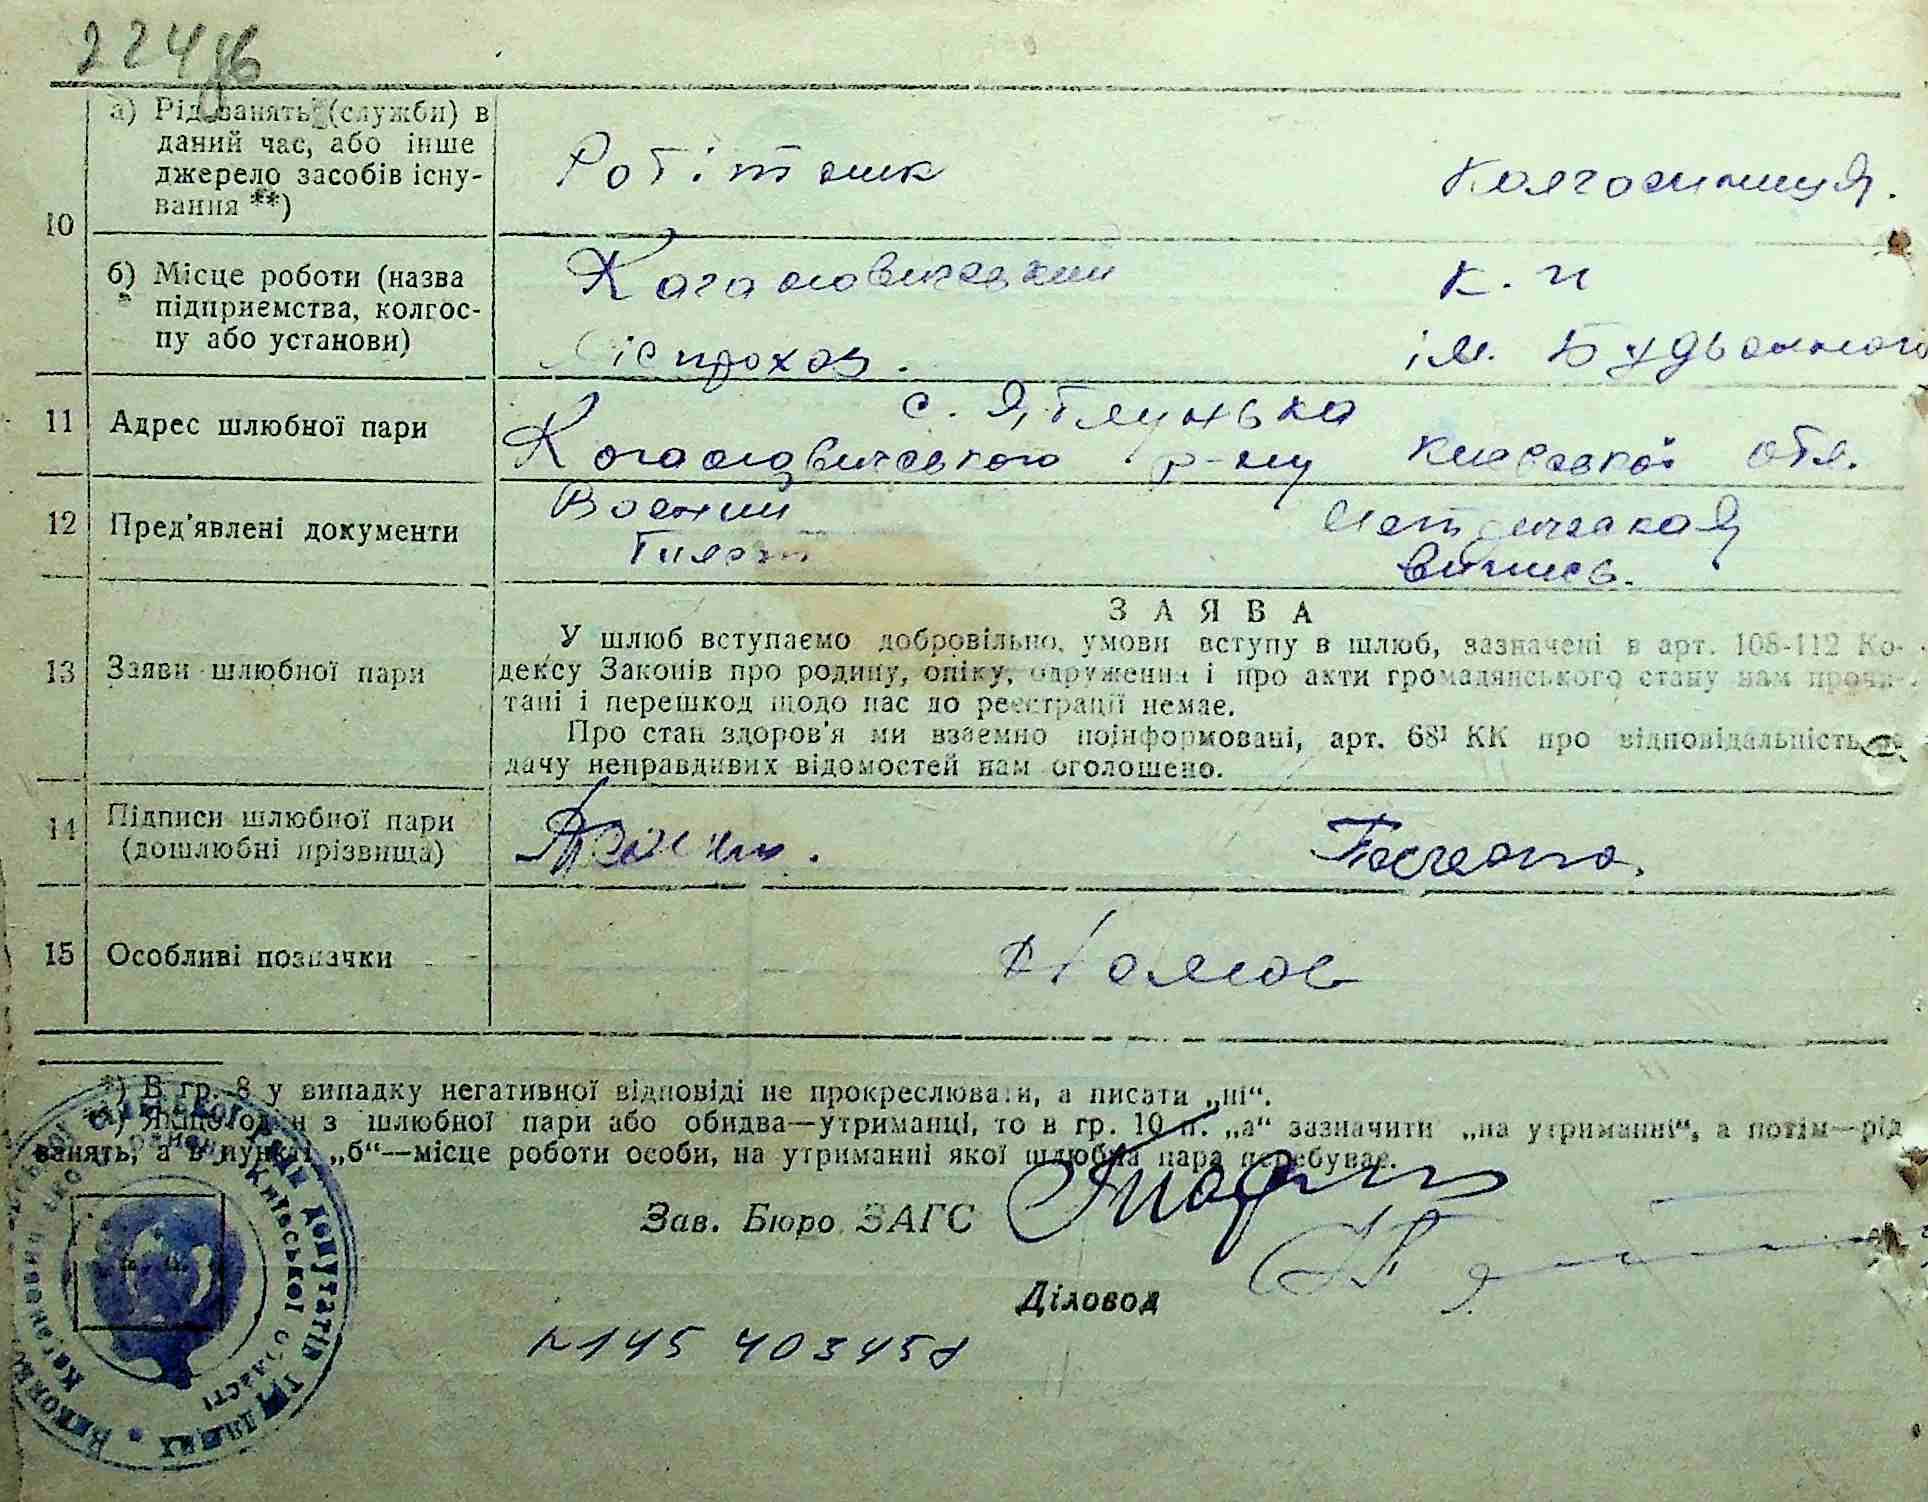 а) Рід занять (служби) в
даний час, або інше
джерело засобів існу-
вання **)
Робітник
Колгоспниця.
10
б) Місце роботи (назва
підприємства, колгос-
пу або установи)
Кагановичський
Ліспрохоз.
к. г
ім. Будьонного
11
Адрес шлюбної пари
с. Яблунька
Кагановичського р-ну Київської обл.
12
Пред'явлені документи
Воєнний
білет
Метрическая
выпись.
13
Заяви шлюбної пари
ЗАЯВА
У шлюб вступаємо добровільно, умови вступу в шлюб, зазначені в арт. 108-112 Ко-
дексу Законів про родину, опіку, одруження і про акти громадянського стану нам прочи-
тані і перешкод щодо нас до реєстрації немає.
Про стан здоров'я ми взаємно поінформовані, арт. 68¹ КК про відповідальність за
дачу неправдивих відомостей нам оголошено.
14
Підписи шлюбної пари
(дошлюбні прізвища)
15
Особливі позначки
*) В гр. 8 у випадку негативної відповіді не прокреслювати, а писати „ні“.
**) Якщо один з шлюбної пари або обидва—утриманці, то в гр. 10 п. „а“ зазначити „на утриманні“, а потім—рід
занять, а в пункті „б“—місце роботи особи, на утриманні якої шлюбна пара перебуває.
Зав. Бюро ЗАГС
Діловод
депутатів трудящих
Київської області